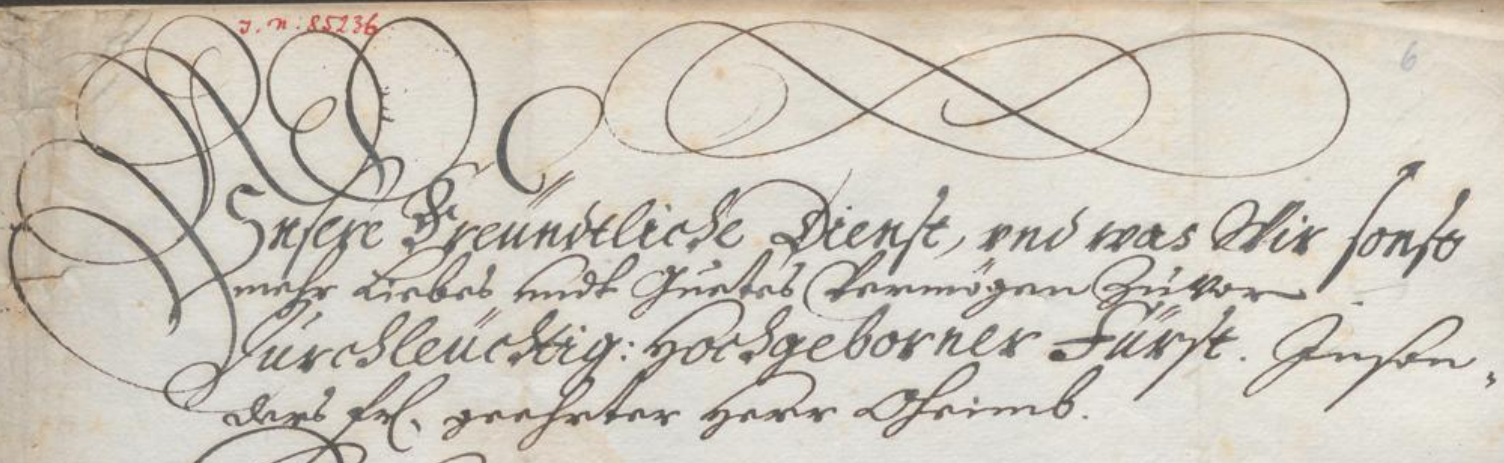 J. N: 85236
6
Unsere Freündtliche Dienst, vnd was Wir sonst
mehr Liebes undt Guetes Vermögen Zuvor
Durchleüchtig: Hochgeborner Fürst. Inson,,
ders frl. geehrter Herr Oheimb.